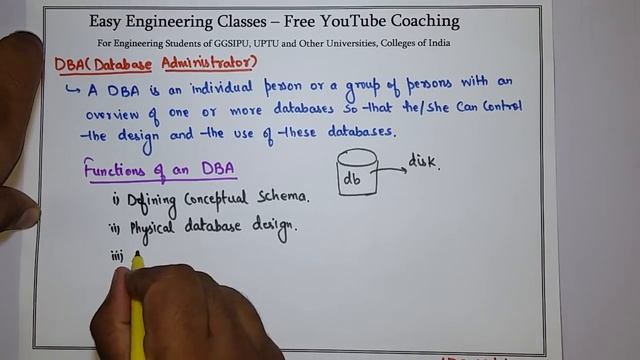 Easy Engineering Classes – Free YouTube Coaching
For Engineering Students of GGSIPU, UPTU and Other Universities, Colleges of India
DBA (Database Administrator)
↳ A DBA is an individual person or a group of persons with an
overview of one or more databases so that he/she can control
the design and the use of these databases.
Functions of an DBA
i) Defining Conceptual Schema.
ii) Physical database design.
iii)
db
disk.